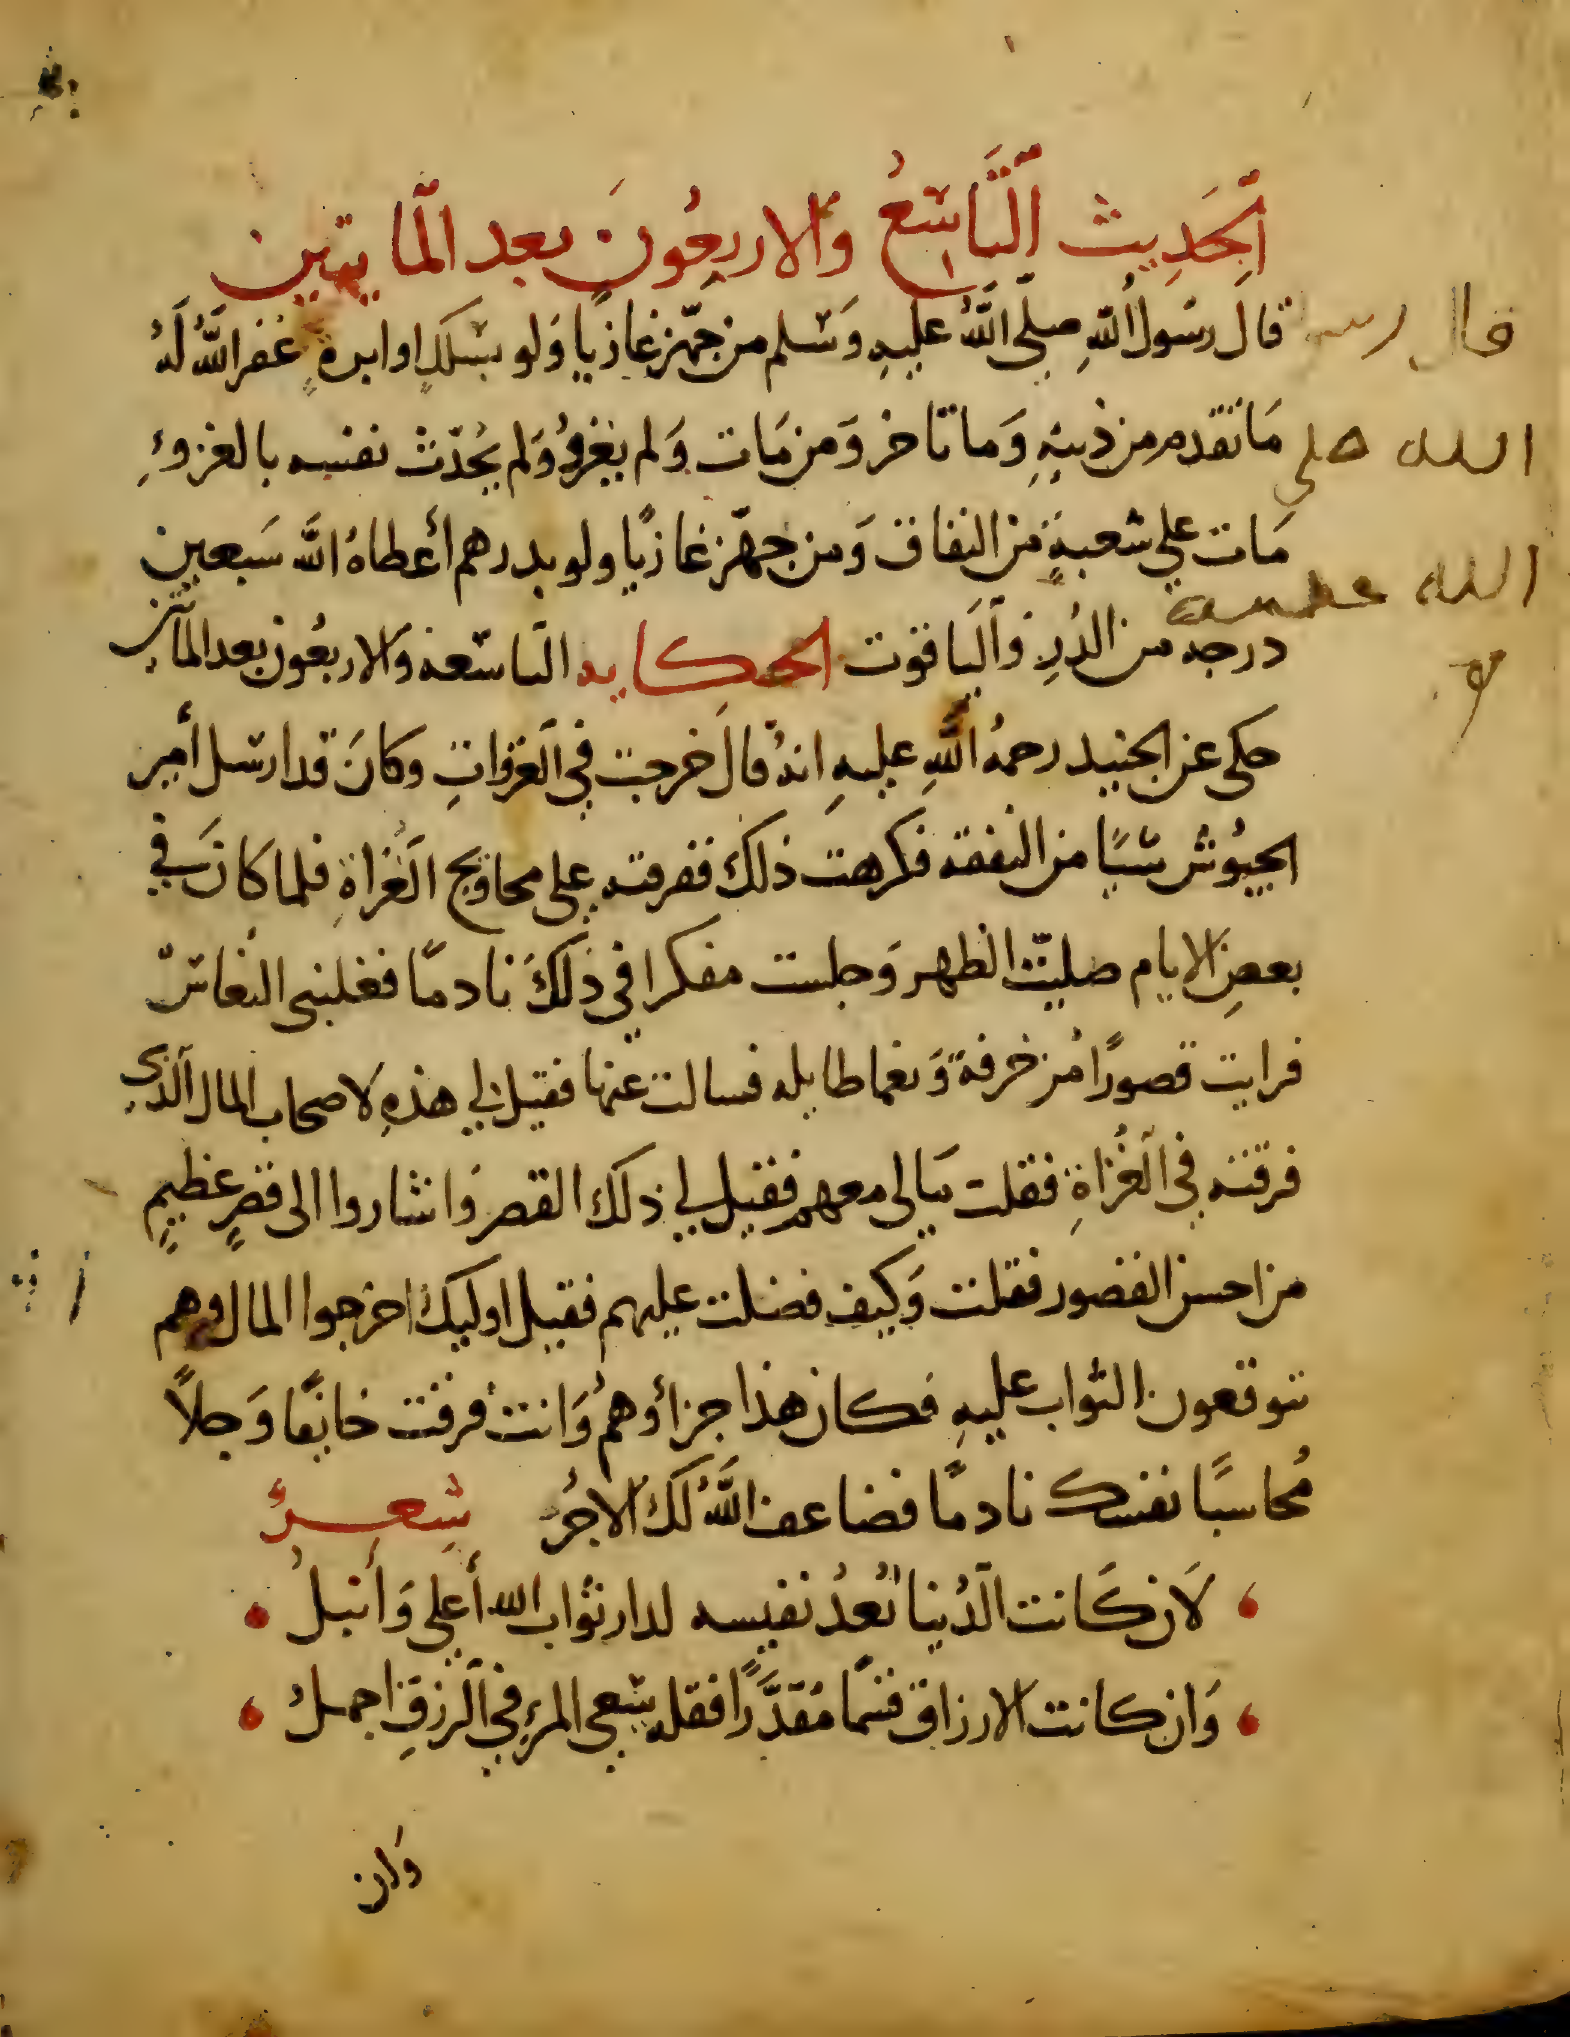 الحَدِيث التَّاسِعُ والاربعُونَ بعد المايتين
قالَ رسُول اللهِ صلّى اللهُ عليهِ وَسلم من جهّز غازيًا وَلو بسلكٍ او ابرةٍ غفر اللهُ لهُ
مَا تقدم من ذنبهِ وَما تاخر وَمن مَات وَلم يغزُ وَلم يُحدّث نفسه بالغزوِ
مَات على شعبةٍ من النفاق وَمن جهّز غازيًا ولو بدرهم أعطاهُ اللهُ سَبعين
درجه من الدُرِ وَاليَاقوت الحكايه التاسعه وَالاربعُون بعد المأتين
حكى عن الجنيد رحمهُ اللهِ عليهِ انهُ قال خرجت في الغزَواتِ وكانَ قد ارسل أمير
الجيُوش شيًا من النفقه فكرهت ذلك ففرقته على محاويج الغُزاةِ فلما كانَ في
بعضِ الايام صليّت الظهر وَجلست مفكرا في ذَلكَ نادمًا فغلبني النعَاسُ
فرايت قصورًا مزخرفة وَنعما طايله فسالت عنها فقيل لي هذهِ لاصحاب المال الذي
فرقته في الغُزاةِ فقلت مَالى معهم فقيل لي ذلك القصر وَاشاروا الى قصرٍ عظيمٍ
من احسن القصور فقلت وَكيف فضلت عليهم فقيل اوليك اخرجوا المال وهم
يتوقعون الثواب عليهِ فكان هذا جزاؤهمُ وَانت فرقت خايفًا وَجلاً
مُحاسبًا نفسك نادمًا فضاعف اللهُ لك الاجرُ شِعرٌ
لَان كَانت الدُنيا تُعدُ نفيسه لدار ثوَاب الله أعلى وَأنبلُ
وَان كانت الارزاق قسمًا مُقدَّرًا فقله سعى المرءِ في الرزقِ اجملُ
وَان
قال رسو
الله صلى
الله عليه
و